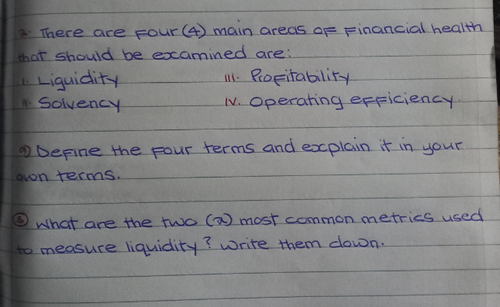 2. There are four (4) main areas of financial health
that should be examined are:
i. Liquidity III. Profitability
ii. Solvency IV. Operating efficiency
a) Define the four terms and explain it in your
own terms.
What are the two (2) most common metrics used
to measure liquidity? Write them down.